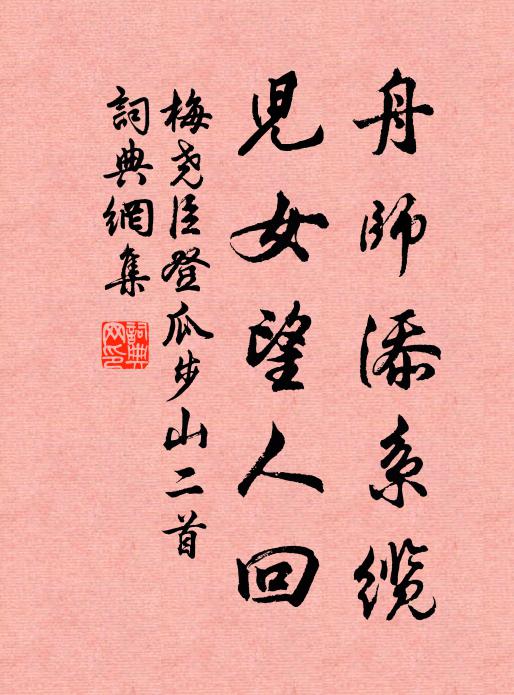 舟師添系纜
兒女望人回
梅尧臣登瓜步山二首
詞典網集
詞典网印